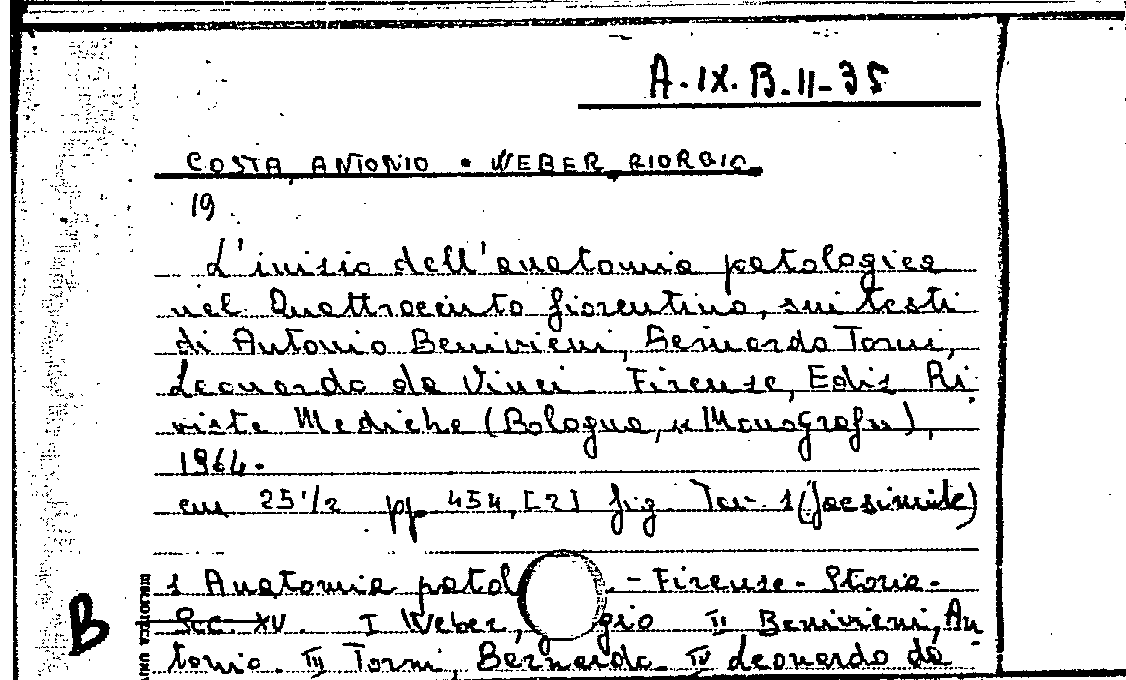 A.IX.B.II-35
COSTA, ANTONIO - WEBER, GIORGIO.
19
L'inizio dell'anatomia patologica
nel Quattrocento fiorentino, sui testi
di Antonio Benivieni, Bernardo Torni,
Leonardo da Vinci. Firenze, Ediz. Ri
viste Mediche (Bologna,
1964.
cm 25 1/2 pp. 454, [2] fig. Tav. 1 (facsimile)
1 Anatomia patol - Firenze - Storia -
Sec. XV. I Weber, gio II Benivieni, An
B
tonio. III Torni, Bernardo. IV Leonardo da